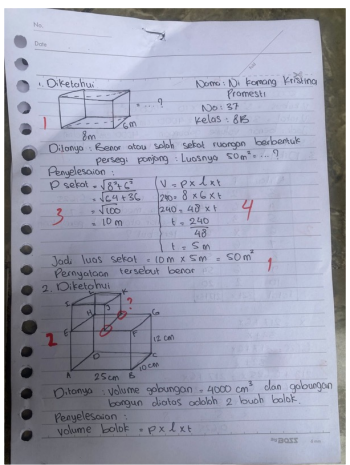 No.
Date
1. Diketahui
Nama : Ni Komang Kristina Pramesti
No : 37
Kelas : 8B
= .... ?
1
6m
8m
Ditanya : Benar atau salah sekat ruangan berbentuk
persegi panjang : Luasnya 50 m² = ... ?
Penyelesaian :
P sekat = √8²+6²
= √64 + 36
= √100
= 10 m
3
V = p x l x t
240 = 8 x 6 x t
240 = 48 x t
t = 240/48
t = 5 m
4
Jadi luas sekat = 10 m x 5 m = 50 m²
1
Pernyataan tersebut benar
2. Diketahui
L K
I J ?
H G
2 E F 12 cm
D C
10 cm
A 25 cm B
Ditanya : Volume gabungan = 4000 cm³ dan gabungan
bangun diatas adalah 2 buah balok.
Penyelesaian :
Volume balok = p x l x t
BOSS